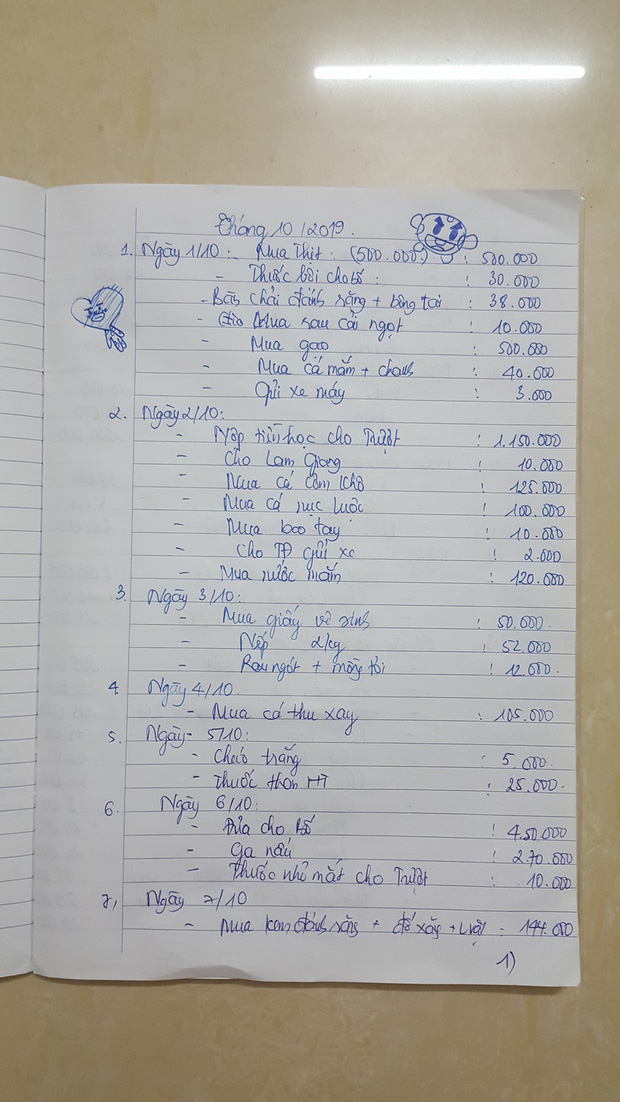 Tháng 10/2019.
1. Ngày 1/10: - Mua Thịt: (500.000) : 500.000
- Thuốc bôi cho bố : : 30.000
- Bàn chải đánh răng + bông tai : 38.000
- Mua rau cải ngọt : 10.000
- Mua gạo : 500.000
- Mua cá mắm + chanh : 40.000
- Gửi xe máy : 3.000
2. Ngày 2/10:
- Nộp tiền học cho : 1.150.000
- Cho Lam Giang : 10.000
- Mua cá cơm khô : 125.000
- Mua cá nục luộc : 100.000
- Mua bao tay : 10.000
- Cho TĐ gửi xe : 2.000
- Mua nước mắm : 120.000
3. Ngày 3/10:
- Mua giấy vệ sinh : 50.000.
- Nếp 2/kg : 52.000
- Rau ngót + mồng tơi : 12.000.
4. Ngày 4/10.
- Mua cá thu xay : 105.000
5. Ngày - 5/10:
- Cháo trắng : 5.000.
- Thuốc HT : 25.000.
6. Ngày 6/10:
- Đưa cho bố : 450.000
- Ga nấu : 270.000
- Thuốc nhỏ mắt cho : 10.000
7, Ngày 7/10
- Mua kem đánh răng + + : 144.000
1)